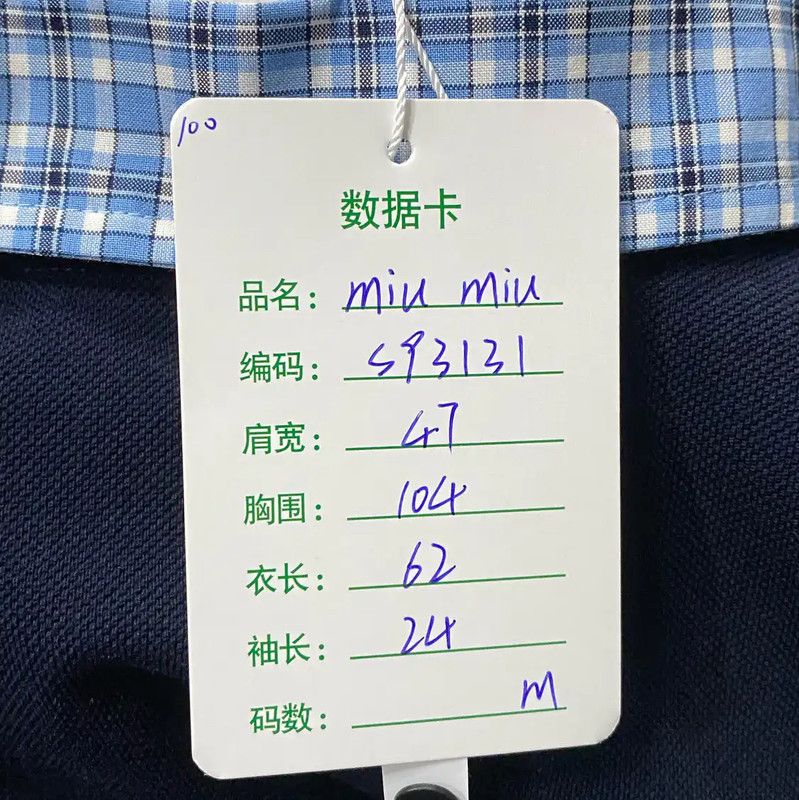 100
数据卡
品名: miu miu
编码: S93131
肩宽: 47
胸围: 104
衣长: 62
袖长: 24
码数: M